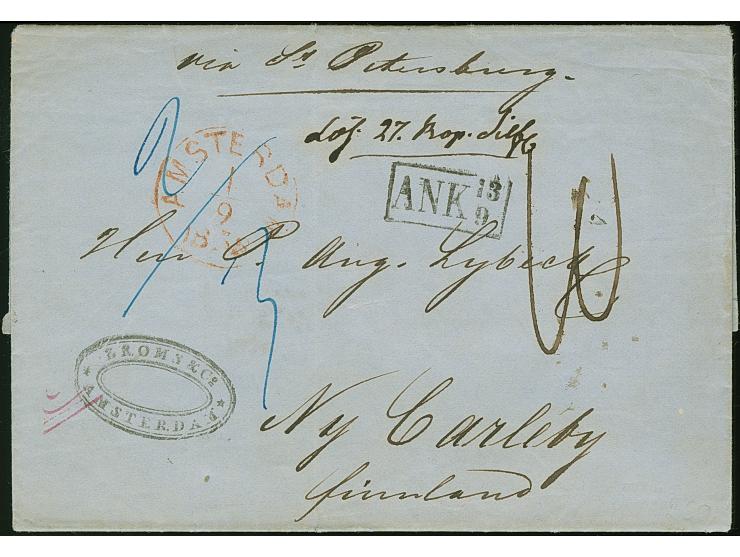 via St Petersburg.
Lös. 27. Kop. Silf
AMSTERDAM
1
9
ANK 13
9
Herr P. Aug. Lybeck
BROMS & Co
AMSTERDAM
Ny Carleby
Finnland